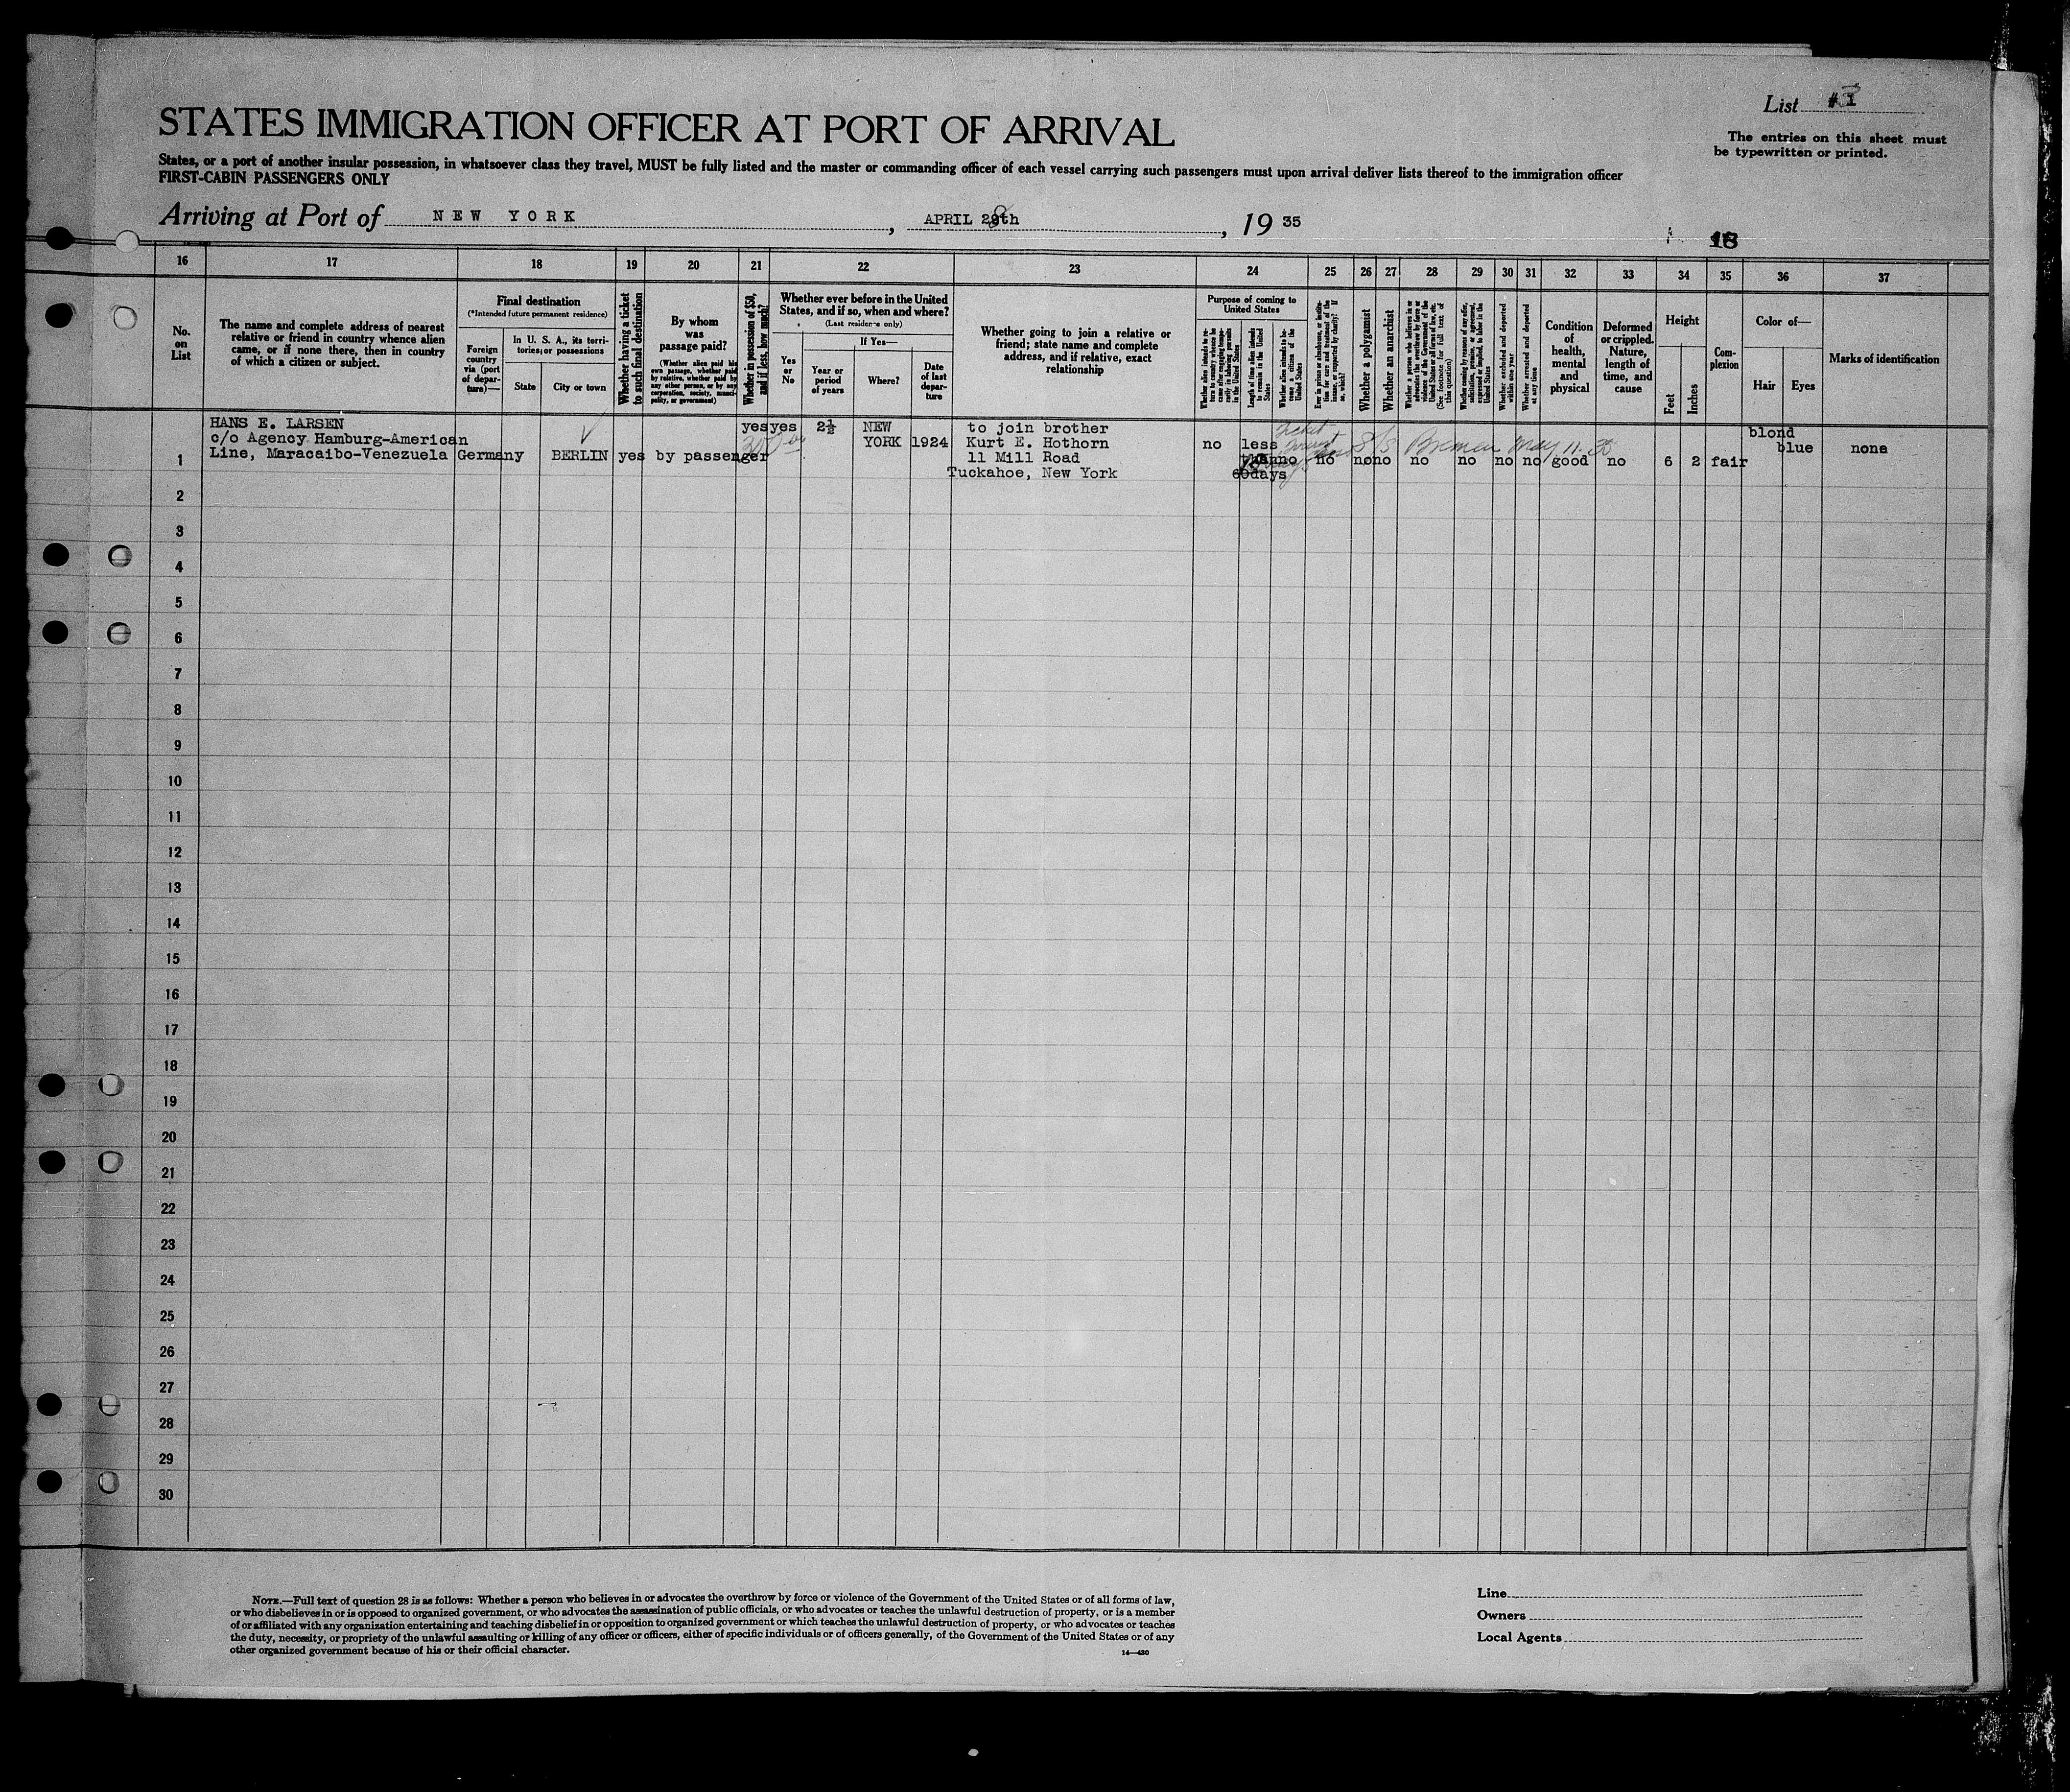 List #1
STATES IMMIGRATION OFFICER AT PORT OF ARRIVAL
The entries on this sheet must
be typewritten or printed.
States, or a port of another insular possession, in whatsoever class they travel, MUST be fully listed and the master or commanding officer of each vessel carrying such passengers must upon arrival deliver lists thereof to the immigration officer
FIRST-CABIN PASSENGERS ONLY
Arriving at Port of NEW YORK, APRIL 28th, 1935
18
16 17 18 19 20 21 22 23 24 25 26 27 28 29 30 31 32 33 34 35 36 37
No.
on
List
The name and complete address of nearest
relative or friend in country whence alien
came, or if none there, then in country
of which a citizen or subject.
Final destination
(*Intended future permanent residence)
Foreign
country
via (port
of depar-
ture)—
In U. S. A., its terri-
tories, or possessions
State
City or town
Whether having a ticket
to such final destination
By whom
was
passage paid?
(Whether alien paid his
own passage, whether paid
by relative, whether paid by
any other person, or by any
corporation, society, munici-
pality, or government)
Whether in possession of $50,
and if less, how much?
Whether ever before in the United
States, and if so, when and where?
(Last residence only)
Yes
or
No
If Yes—
Year or
period
of years
Where?
Date
of last
depar-
ture
Whether going to join a relative or
friend; state name and complete
address, and if relative, exact
relationship
Purpose of coming to
United States
Whether alien intends to re-
turn to country whence he
came after engaging tempo-
rarily in laboring pursuits
in the United States
Length of time alien intends
to remain in the United
States
Whether alien intends to be-
come a citizen of the
United States
Ever in prison or almshouse, or institu-
tion for care and treatment of the
insane, or supported by charity? If
so, which?
Whether a polygamist
Whether an anarchist
Whether a person who believes in or
advocates the overthrow by force or
violence of the Government of the
United States or all forms of law, etc.
(See footnote for full text of
this question)
Whether coming by reasons of any offer,
solicitation, promise, or agreement,
expressed or implied, to labor in the
United States
Whether excluded and deported
within one year
Whether arrested and deported
at any time
Condition
of
health,
mental
and
physical
Deformed
or crippled.
Nature,
length of
time, and
cause
Height
Feet
Inches
Com-
plexion
Color of—
Hair
Eyes
Marks of identification
HANS E. LARSEN
c/o Agency Hamburg-American
1 Line, Maracaibo-Venezuela Germany BERLIN yes by passenger
yes yes 2½ NEW
YORK 1924
to join brother
Kurt E. Hothorn
11 Mill Road
Tuckahoe, New York
no less
than
60days
no no no no no no no no good no 6 2 fair
blond
blue none
S/S Bremen May 11-35
2
3
4
5
6
7
8
9
10
11
12
13
14
15
16
17
18
19
20
21
22
23
24
25
26
27
28
29
30
NOTE.—Full text of question 28 is as follows: Whether a person who believes in or advocates the overthrow by force or violence of the Government of the United States or of all forms of law,
or who disbelieves in or is opposed to organized government, or who advocates the assassination of public officials, or who advocates or teaches the unlawful destruction of property, or is a member
of or affiliated with any organization entertaining and teaching disbelief in or opposition to organized government or which teaches the unlawful destruction of property, or who advocates or teaches
the duty, necessity, or propriety of the unlawful assaulting or killing of any officer or officers, either of specific individuals or of officers generally, of the Government of the United States or of any
other organized government because of his or their official character.
14—430
Line
Owners
Local Agents